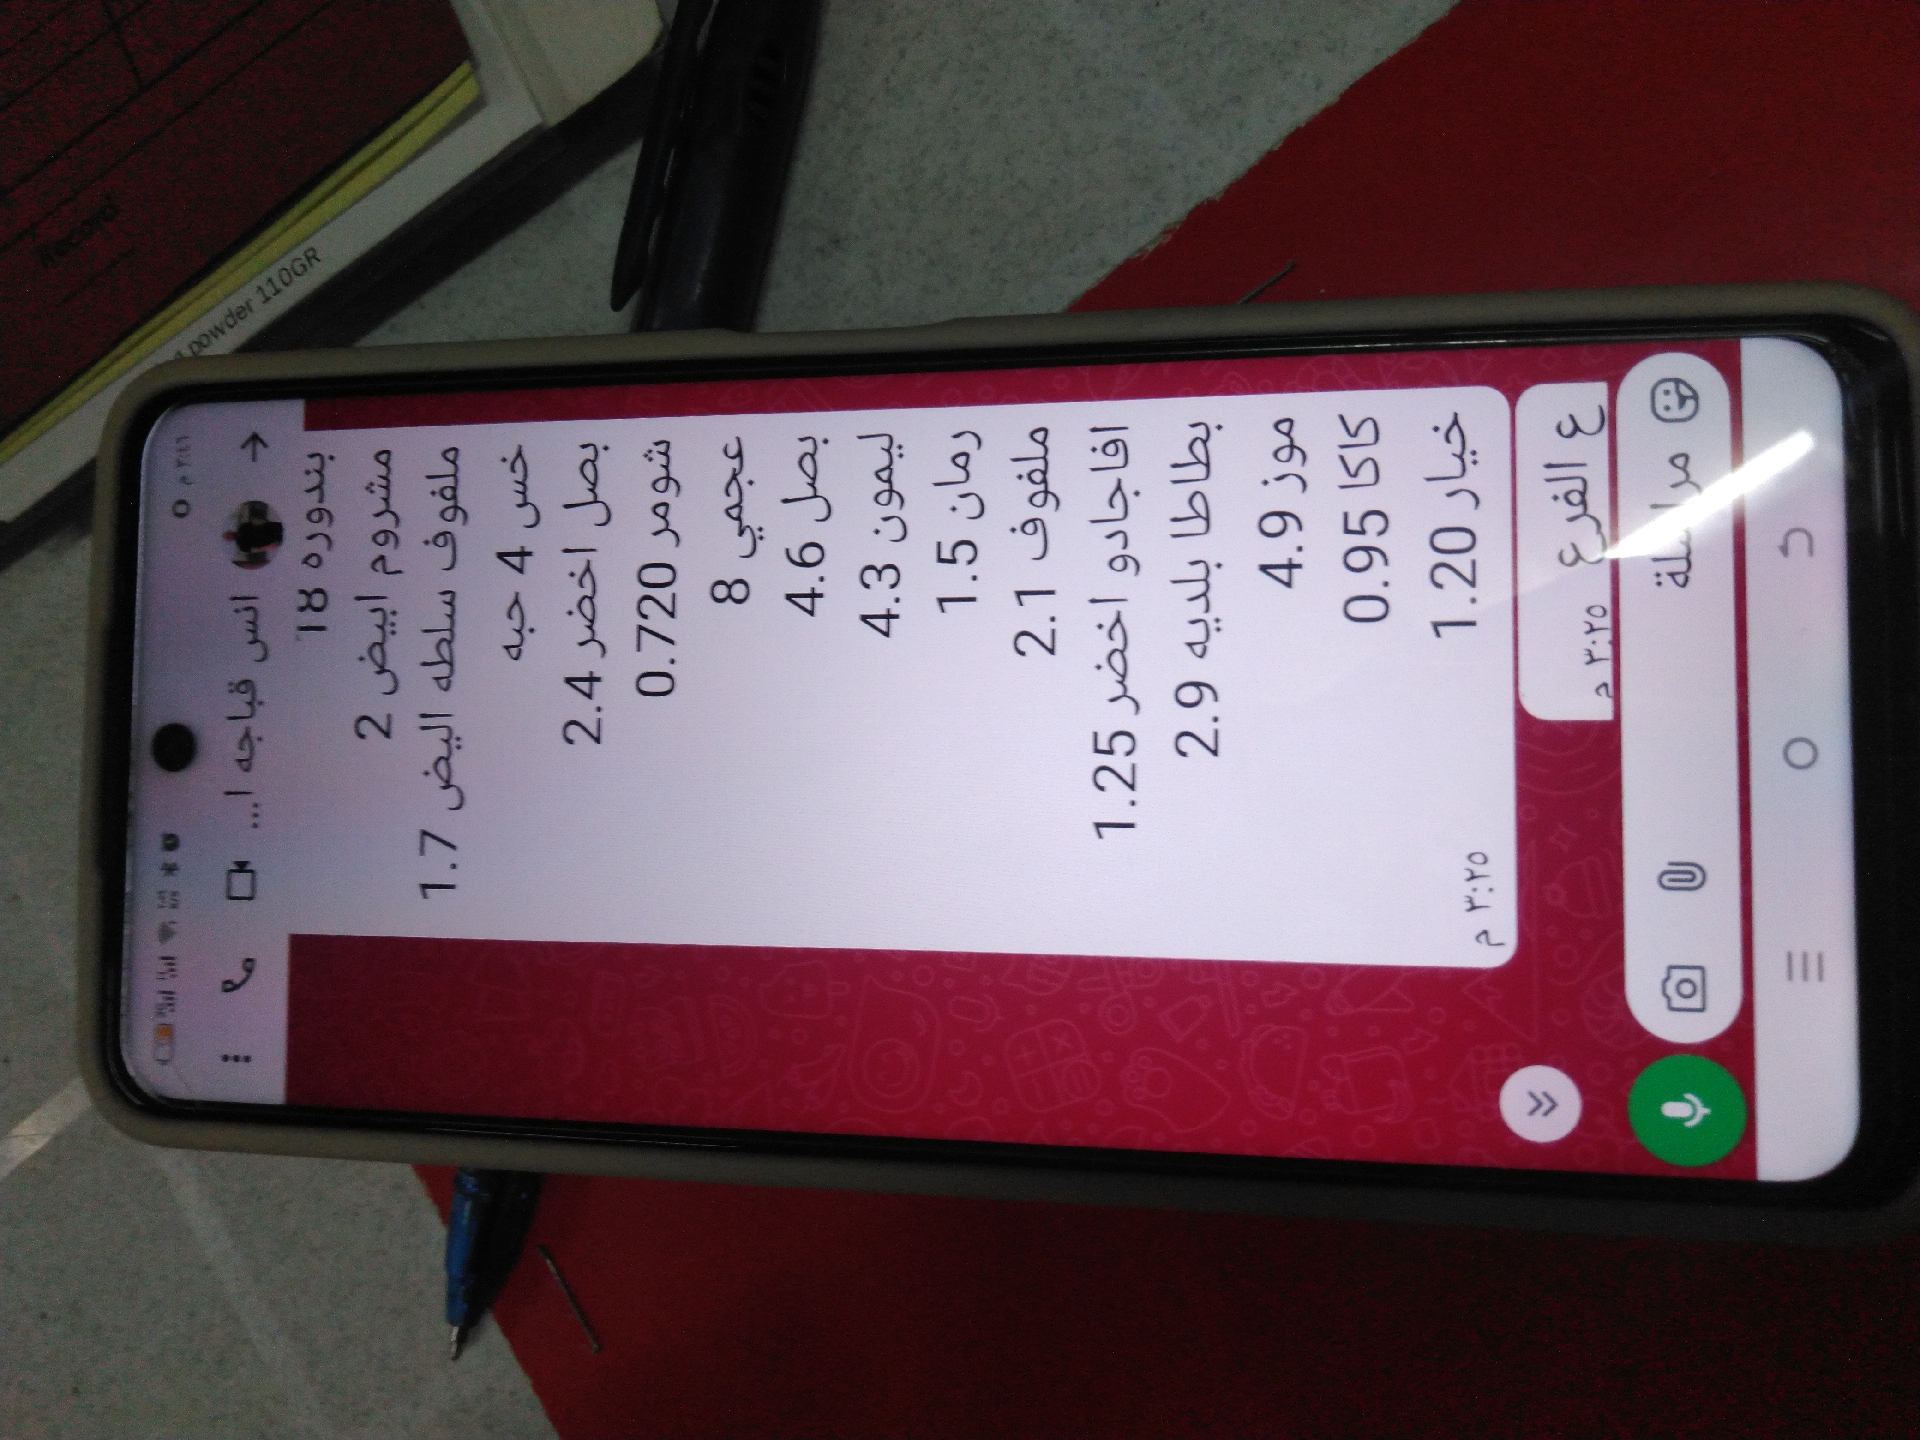 Record
powder 110GR
انس قباجه ا...
بندوره 18
مشروم ابيض 2
ملفوف سلطه اليض 1.7
خس 4 حبه
بصل اخضر 2.4
شومر 0.720
عجمي 8
بصل 4.6
ليمون 4.3
رمان 1.5
ملفوف 2.1
افاجادو اخضر 1.25
بطاطا بلديه 2.9
موز 4.9
كاكا 0.95
خيار 1.20
٣:٢٥ م
ع الفرع
٣:٢٥ م
مراسلة